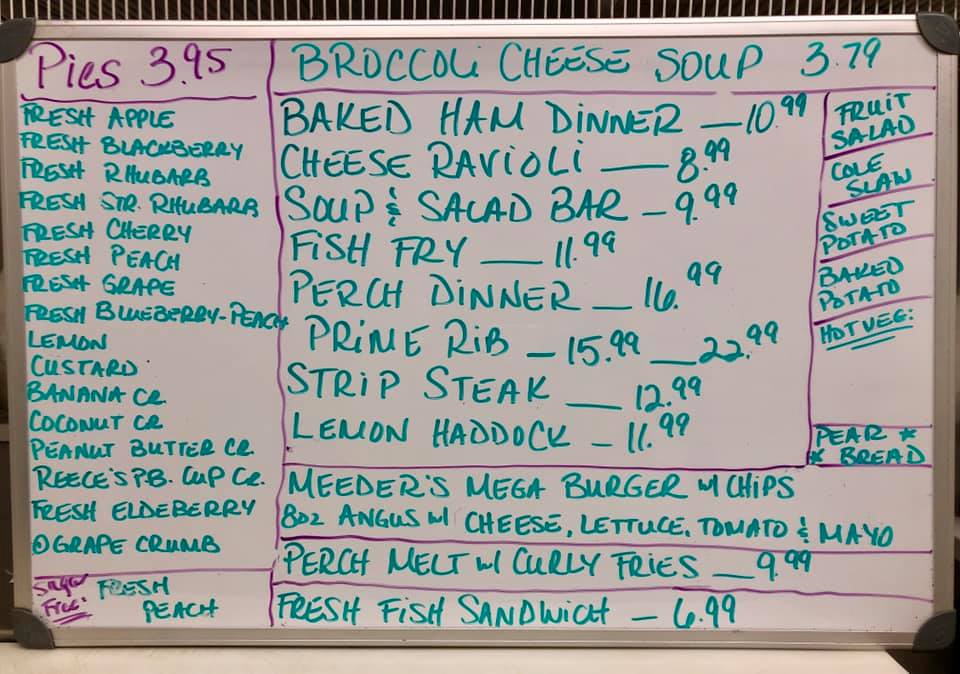 Pies 3.95
FRESH APPLE
FRESH BLACKBERRY
FRESH RHUBARB
FRESH STR. RHUBARB
FRESH CHERRY
FRESH PEACH
FRESH GRAPE
FRESH BLUEBERRY-PEACH
LEMON
CUSTARD
BANANA CR.
COCONUT CR
PEANUT BUTTER CR.
REECE'S P.B. CUP CR.
FRESH ELDEBERRY
GRAPE CRUMB
Sugar Free: FRESH
PEACH
BROCCOLI CHEESE SOUP 3.79
BAKED HAM DINNER — 10.99
CHEESE RAVIOLI — 8.99
SOUP & SALAD BAR — 9.99
FISH FRY — 11.99
PERCH DINNER — 16.99
PRIME RIB — 15.99 — 22.99
STRIP STEAK — 12.99
LEMON HADDOCK — 11.99
FRUIT
SALAD
COLE
SLAW
SWEET
POTATO
BAKED
POTATO
HOT VEG:
PEAR *
* BREAD
MEEDER'S MEGA BURGER W/ CHIPS
8OZ ANGUS W/ CHEESE, LETTUCE, TOMATO & MAYO
PERCH MELT W/ CURLY FRIES — 9.99
FRESH FISH SANDWICH — 6.99